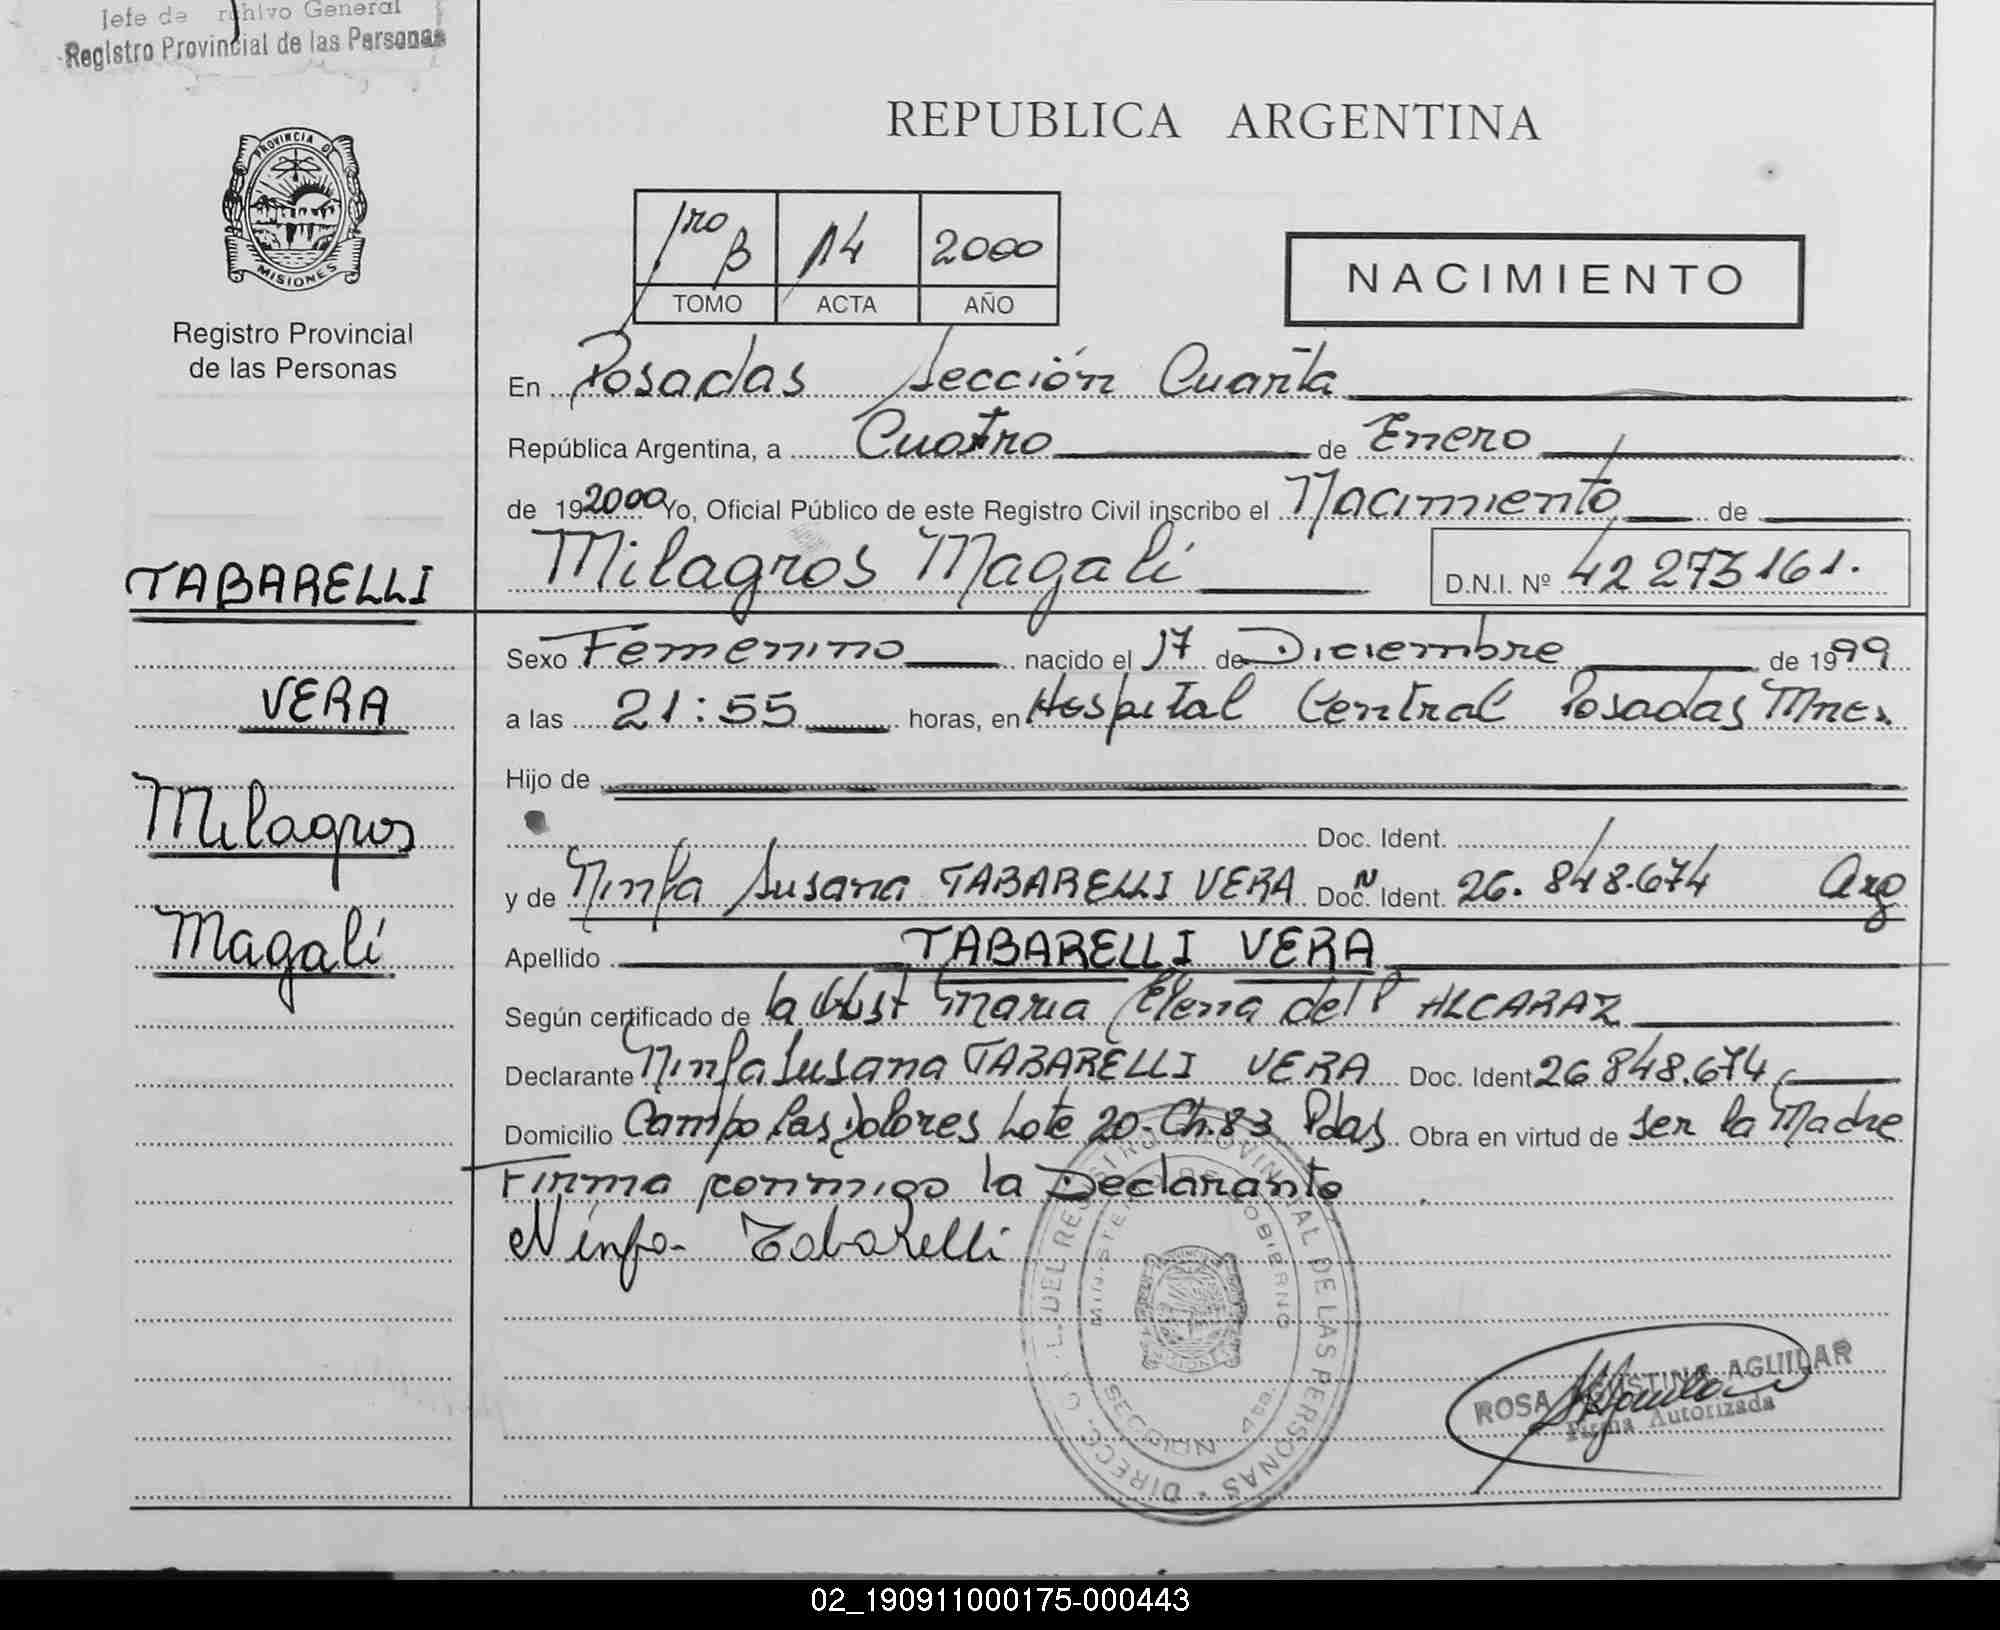 Jefe de Archivo General
Registro Provincial de las Personas
PROVINCIA DE
MISIONES
Registro Provincial
de las Personas
TABARELLI
VERA
Milagros
Magalí
REPUBLICA ARGENTINA
1ro B 14 2000
TOMO ACTA AÑO
NACIMIENTO
En Posadas Sección Cuarta
República Argentina, a Cuatro de Enero
de 192000 Yo, Oficial Público de este Registro Civil inscribo el Nacimiento de
Milagros Magalí D.N.I. Nº 42 273 161.
Sexo Femenino nacido el 17 de Diciembre de 1999
a las 21:55 horas, en Hospital Central Posadas Mnes
Hijo de
Doc. Ident.
y de Ninfa Susana TABARELLI VERA Doc. N Ident. 26.848.674 Arg
Apellido TABARELLI VERA
Según certificado de la Obst Maria Elena del P ALCARAZ
Declarante Ninfa Susana TABARELLI VERA Doc. Ident 26.848.674
Domicilio Campo Las Dolores Lote 20-Ch.83 Pdas Obra en virtud de ser la Madre
Firma conmigo la Declarante
Ninfa Tabarelli
DIRECC. GRAL. DEL REGISTRO PROVINCIAL DE LAS PERSONAS
MINISTERIO DE GOBIERNO
SECCION 4ta.
ROSA AGUSTINA AGUILAR
Firma Autorizada
02_190911000175-000443